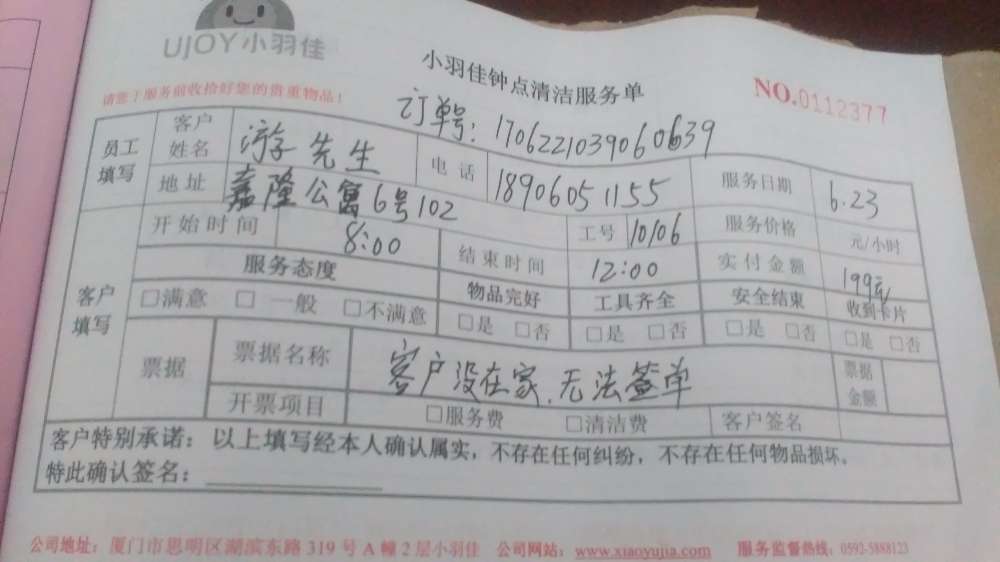 UJOY小羽佳
小羽佳钟点清洁服务单
NO.0112377
请您于服务前收拾好您的贵重物品！
订单号：1706221039060639
员工填写 客户姓名 游先生 电话 18906051155 服务日期 6.23
地址 嘉隆公寓6号102 工号 10106 服务价格 元/小时
开始时间 8:00 结束时间 12:00 实付金额 199元
客户填写 服务态度 物品完好 工具齐全 安全结束 收到卡片
□满意 □一般 □不满意 □是 □否 □是 □否 □是 □否 □是 □否
票据 票据名称 客户没在家、无法签单 票据金额
开票项目 □服务费 □清洁费 客户签名
客户特别承诺：以上填写经本人确认属实，不存在任何纠纷，不存在任何物品损坏。
特此确认签名：
公司地址：厦门市思明区湖滨东路319号A幢2层小羽佳 公司网站：www.xiaoyujia.com 服务监督热线：0592-5888123